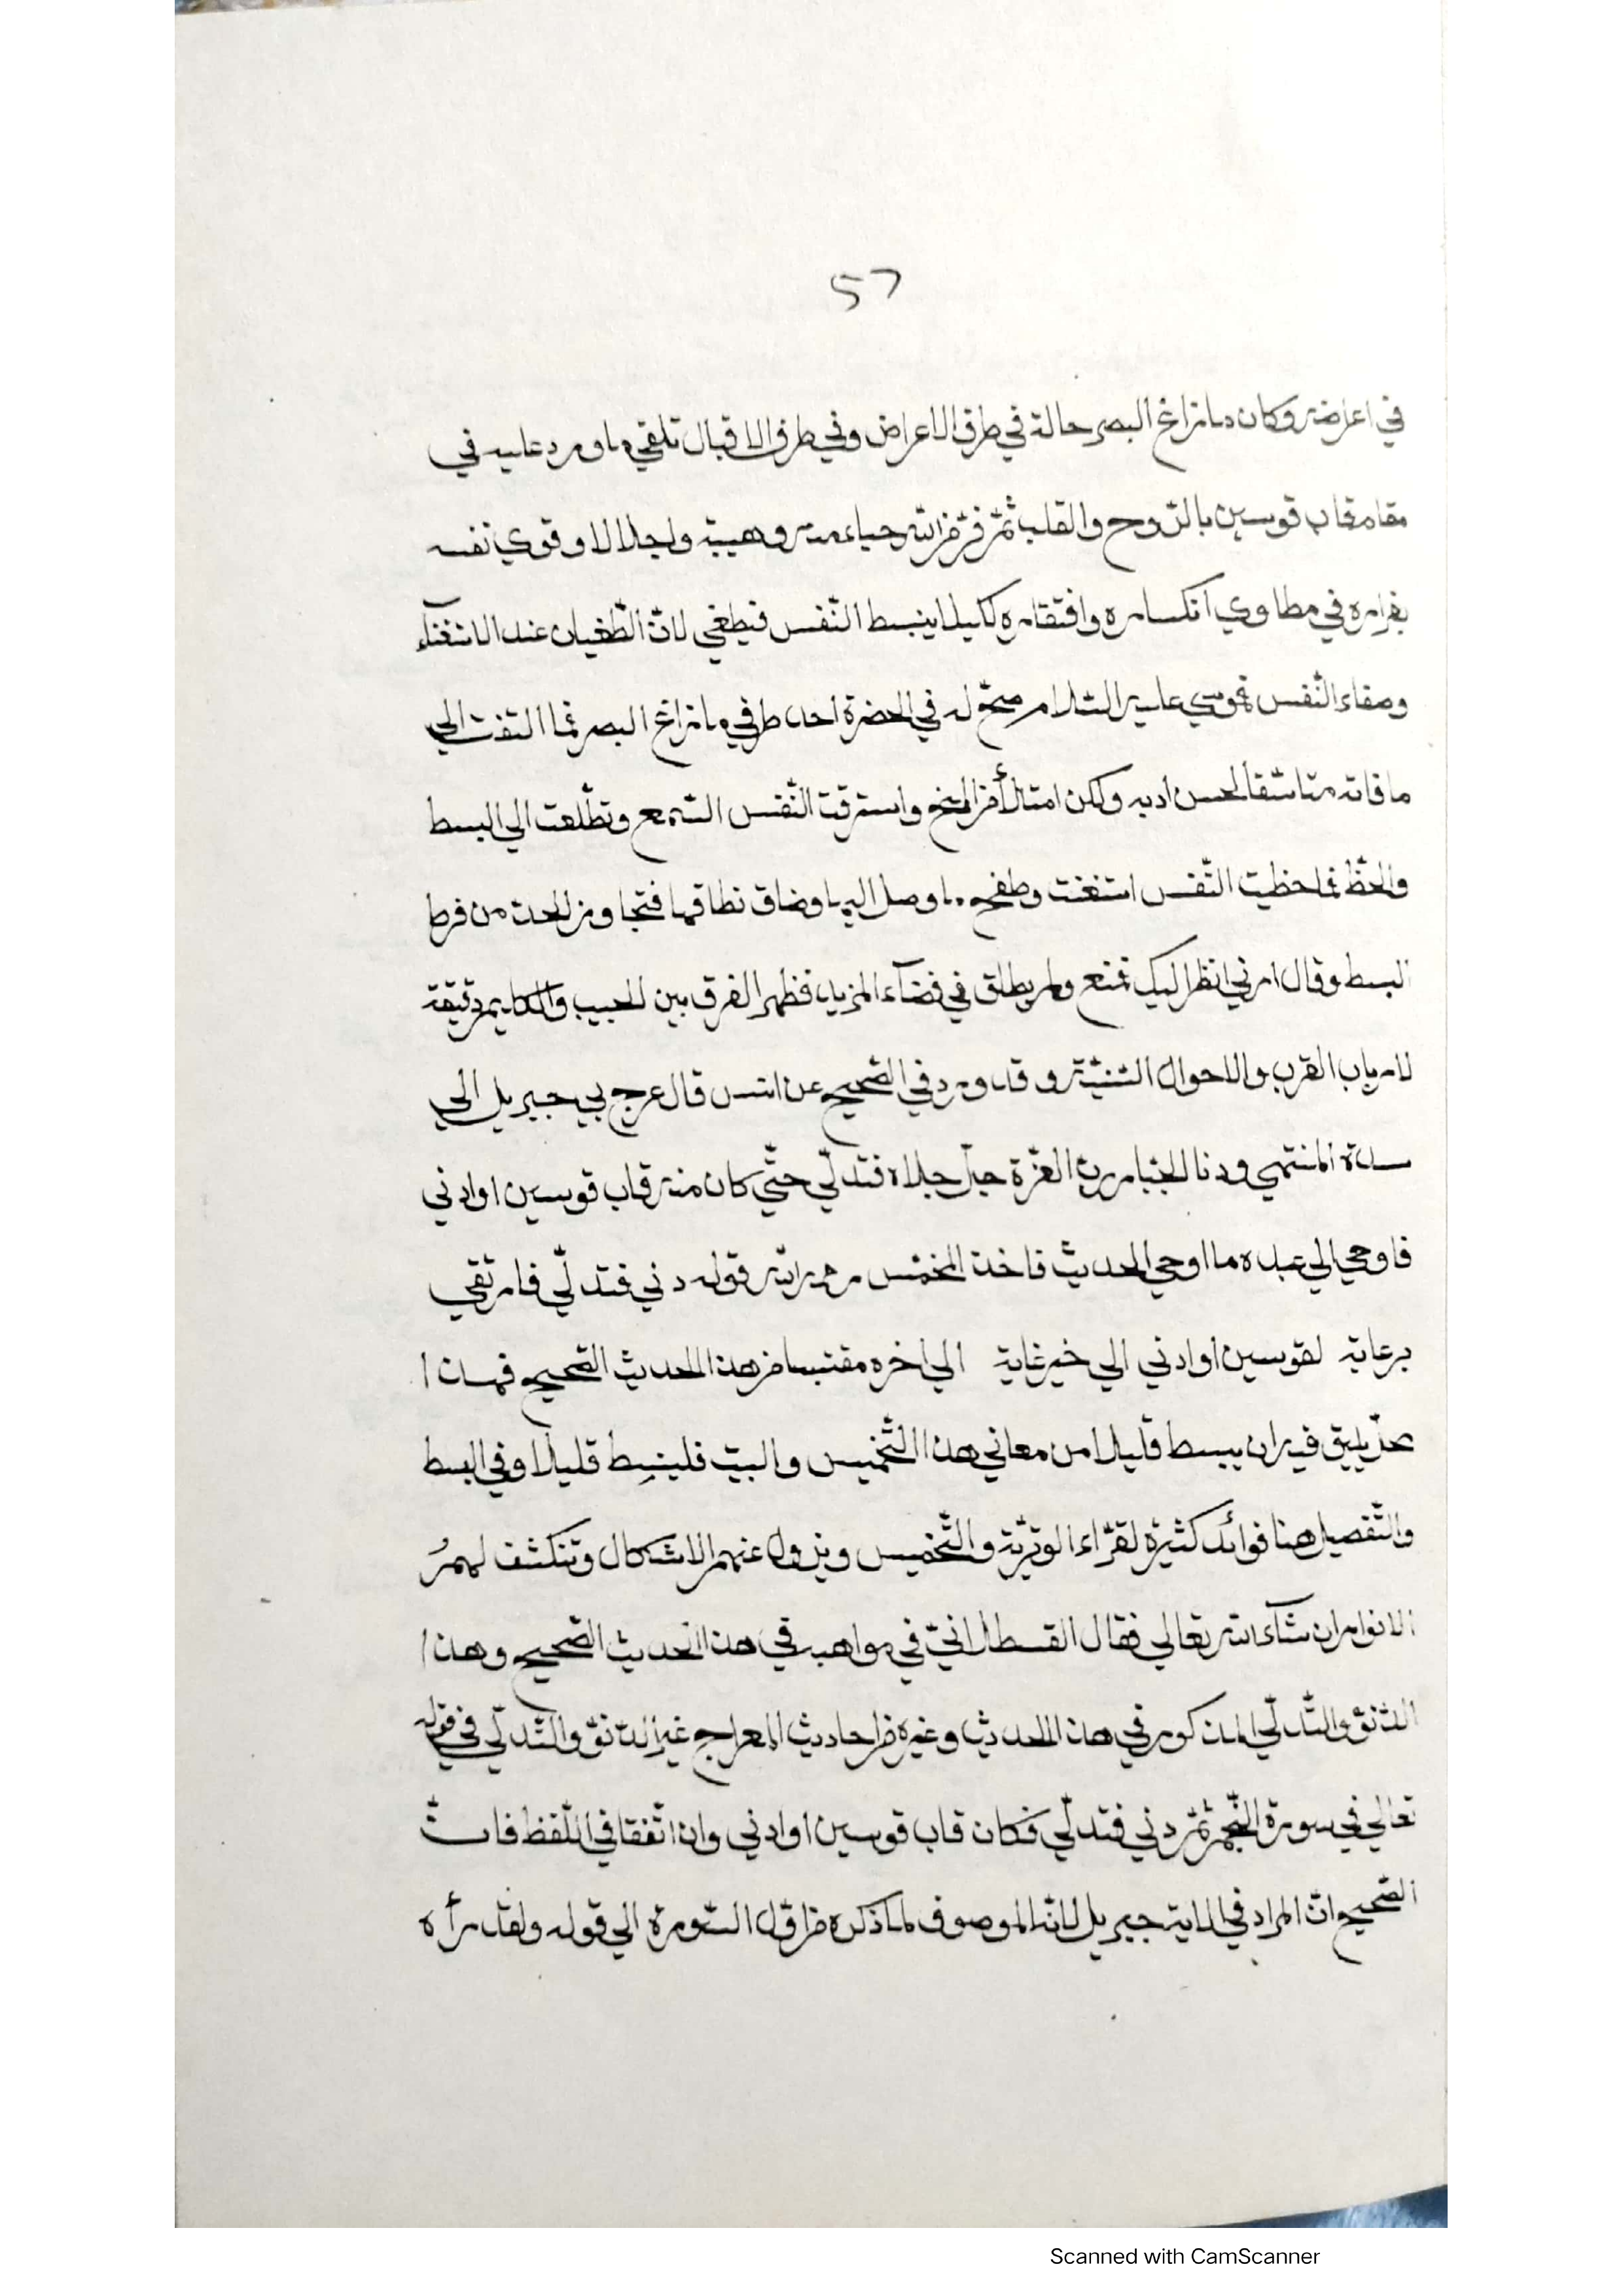 57
في اعراضه وكان ما زاغ البصر حالة في طرف الاعراض وفي طرف الاقبال تلقي ما ورد عليه في
مقام قاب قوسين بالرّوح والقلب ثمّ فرّ من الله حياء منه وهيبة واجلالا وقوي نفسه
بفراره في مطاوي انكساره وافتقاره لكيلا ينبسط النّفس فيطغي لانّ الطّغيان عند الاستغناء
وصفاء النّفس فموسي عليه السّلام صحّ له في الحضرة احد طرفي ما زاغ البصر فما التفت الي
ما فاته متاسّفا لحسن ادبه ولكن امتلأ من المنح واسترقت النّفس السّمع وتطلّعت الي البسط
والحظّ فلما حظيت النّفس استغنت وطفح ما وصل اليها وضاق نطاقها فتجاوز الحد من فرط
البسط وقال ارني انظر اليك فمنع ولم يطلق في فضآء المزيد فظهر الفرق بين الحبيب والكليم دقيقة
لارباب القرب والاحوال السّنيّة وقد ورد في الصّحيح عن انس قال عرج بي جبريل الي
سدرة المنتهي ودنا الجبّار ربّ العزّة جلّ جلاله فتدلّي حتّي كان منه قاب قوسين او ادني
فاوحي الي عبده ما اوحي الحديث فاخذ المخمّس رحمه الله قوله دني فتدلّي فارتقي
برعاية لقوسين او ادني الي خير غاية الي اخره مقتبسا من هذا الحديث الصّحيح فهذا
محلّ يليق فيه ان يبسط قليلا من معاني هذا التّخميس والبيت فلينبسط قليلا وفي البسط
والتّفصيل هنا فوائد كثيرة لقرّاء الوتريّة والتّخميس ويزول عنهم الاشكال وتنكشف لهمُ
الانوار ان شآء الله تعالي فقال القسطلّانيّ في مواهبه في هذا الحديث الصّحيح وهذا
الدّنوّ والتّدلّي المذكور في هذا الحديث وغيره من احاديث المعراج غير الدّنوّ والتّدلّي في قوله
تعالي في سورة النّجم ثمّ دني فتدلّي فكان قاب قوسين او ادني وان اتّفقا في اللّفظ فانّ
الصّحيح انّ المراد في الاية جبريل لانّه الموصوف لما ذكره من اوّل السّورة الي قوله ولقد رأه
Scanned with CamScanner